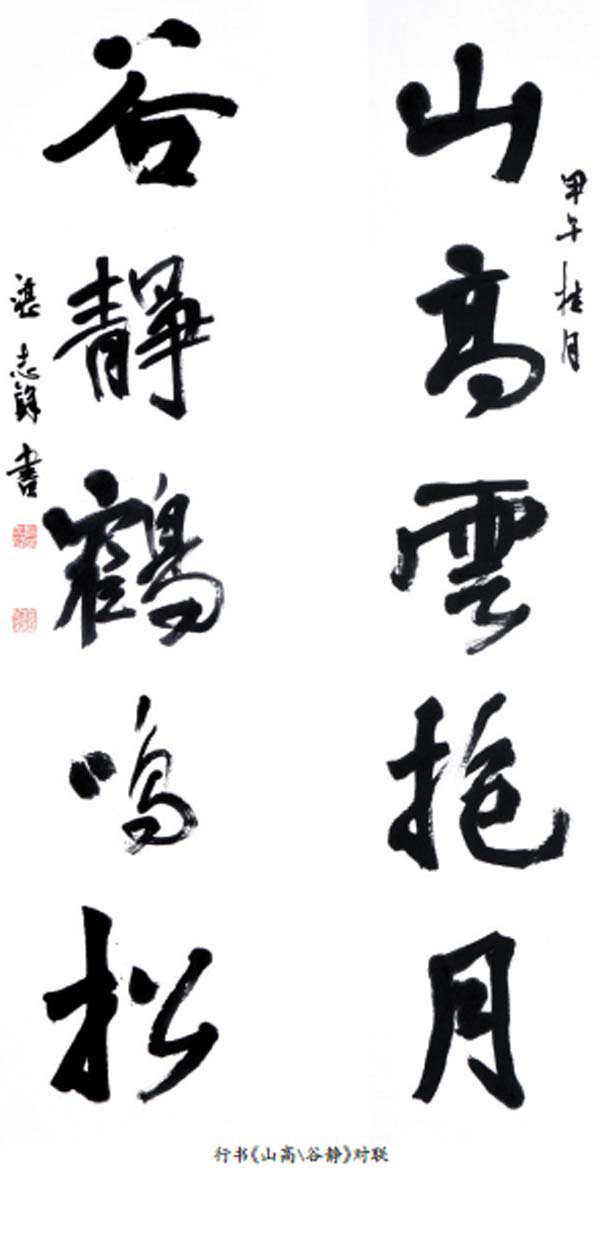 甲午桂月
山高雲抱月
谷靜鶴鳴松
志鋒書
行书《山高\谷静》对联